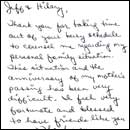 Hilary,
Thank you for taking time
out of your busy schedule
to counsel me regarding my
personal family situation.
This situation and the
anniversary of my mother's
passing has been very
difficult. I feel very
fortunate and blessed
to have friends like you